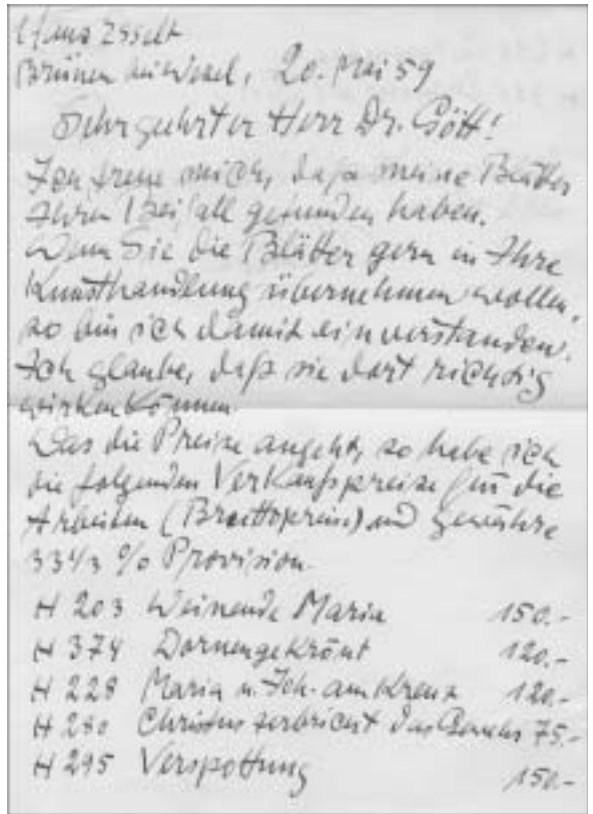 Hans Isselt
Brünen bei Wesel, 20. Mai 59
Sehr geehrter Herr Dr. Gött!
Ich freue mich, daß meine Blätter
Ihren Beifall gefunden haben.
Wenn Sie die Blätter gern in Ihre
Kunsthandlung übernehmen wollen,
so bin ich damit einverstanden.
Ich glaube, daß sie dort richtig
wirken können.
Was die Preise angeht, so habe ich
die folgenden Verkaufspreise für die
Arbeiten (Bruttopreise) und gewähre
33 1/3 % Provision.
H 203 Weinende Maria 150.-
H 374 Dornengekrönt 120.-
H 228 Maria u. Joh. am Kreuz 120.-
H 280 Christus zerbricht das Gewehr 75.-
H 295 Verspottung 150.-